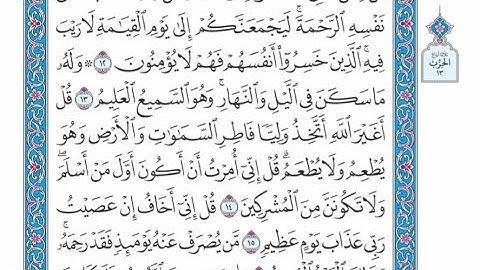 نَفْسِهِ ٱلرَّحْمَةَ ۚ لَيَجْمَعَنَّكُمْ إِلَىٰ يَوْمِ ٱلْقِيَـٰمَةِ لَا رَيْبَ
فِيهِ ۚ ٱلَّذِينَ خَسِرُوٓا۟ أَنفُسَهُمْ فَهُمْ لَا يُؤْمِنُونَ ١٢ ۞ وَلَهُۥ
مَا سَكَنَ فِى ٱلَّيْلِ وَٱلنَّهَارِ ۚ وَهُوَ ٱلسَّمِيعُ ٱلْعَلِيمُ ١٣ قُلْ
أَغَيْرَ ٱللَّهِ أَتَّخِذُ وَلِيًّا فَاطِرِ ٱلسَّمَـٰوَٰتِ وَٱلْأَرْضِ وَهُوَ
يُطْعِمُ وَلَا يُطْعَمُ ۗ قُلْ إِنِّىٓ أُمِرْتُ أَنْ أَكُونَ أَوَّلَ مَنْ أَسْلَمَ ۖ
وَلَا تَكُونَنَّ مِنَ ٱلْمُشْرِكِينَ ١٤ قُلْ إِنِّىٓ أَخَافُ إِنْ عَصَيْتُ
رَبِّى عَذَابَ يَوْمٍ عَظِيمٍ ١٥ مَّن يُصْرَفْ عَنْهُ يَوْمَئِذٍ فَقَدْ رَحِمَهُۥ ۚ
الحزب
١٣